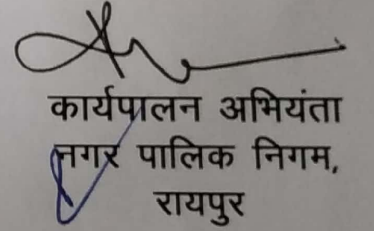 कार्यपालन अभियंता
नगर पालिक निगम,
रायपुर